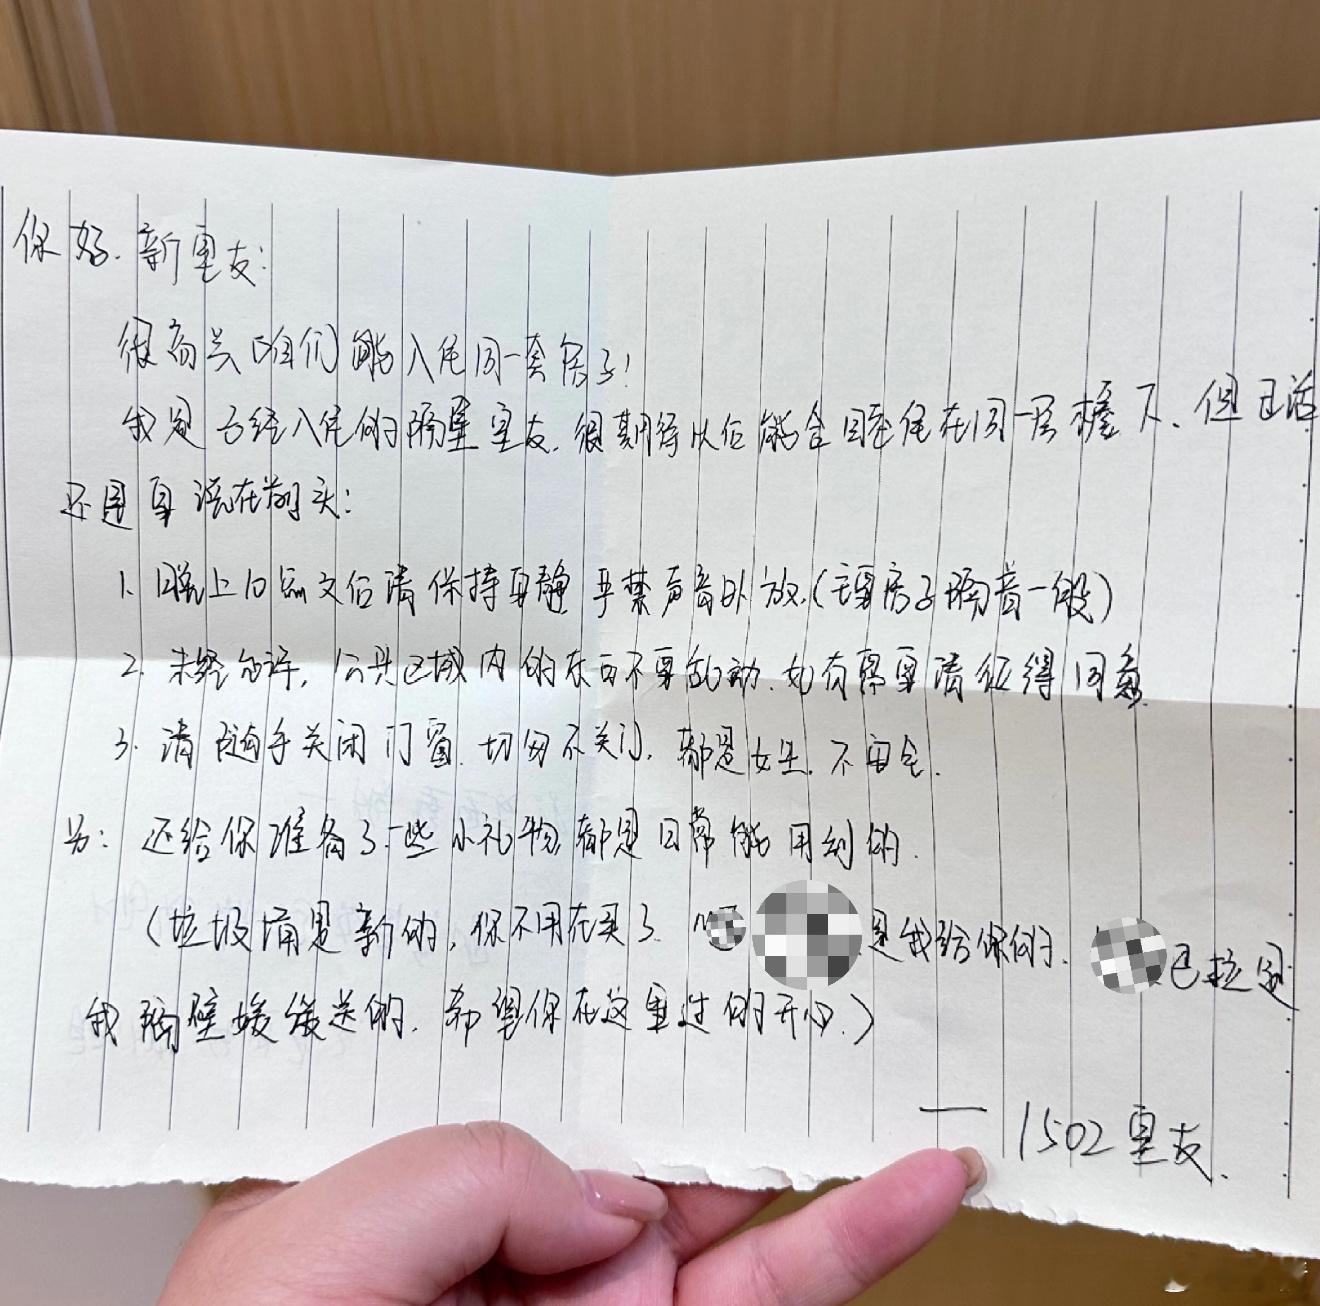 你好.新室友:
很高兴咱们能入住同一套房子!
我是已经入住的隔壁室友.很期待以后能合租住在同一屋檐下、但丑话
还是要说在前头:
1. 晚上10点之后请保持安静 严禁声音外放.(主要房子隔音一般)
2. 未经允许,公共区域内的东西不要乱动.如有需要请征得同意.
3. 请随手关闭门窗.切勿不关门,都是女生.不安全.
另: 还给你准备了一些小礼物,都是日常能用到的.
(垃圾桶是新的,你不用在买了. 是我给你的.
我隔壁媛媛送的.希望你在这里过的开心.)
— 1502室友.